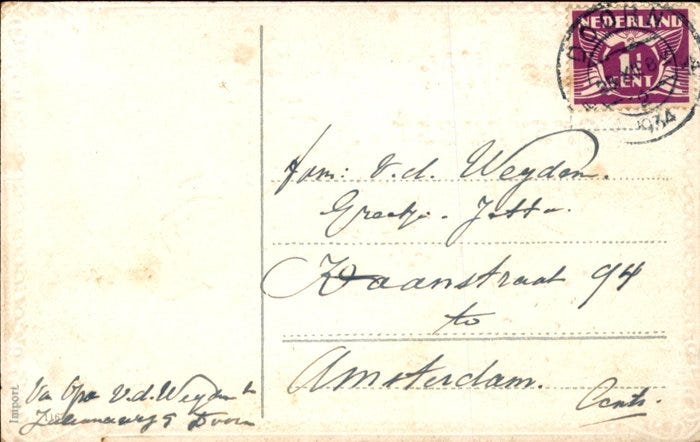 NEDERLAND
1½
CENT
DOORN
1934
fam: v.d. Weyden.
Greetje - Jetta.
Zaanstraat 94
te
Amsterdam.
Centr.
Van Opa v.d. Weyden
Julianaweg 9 Doorn
Import